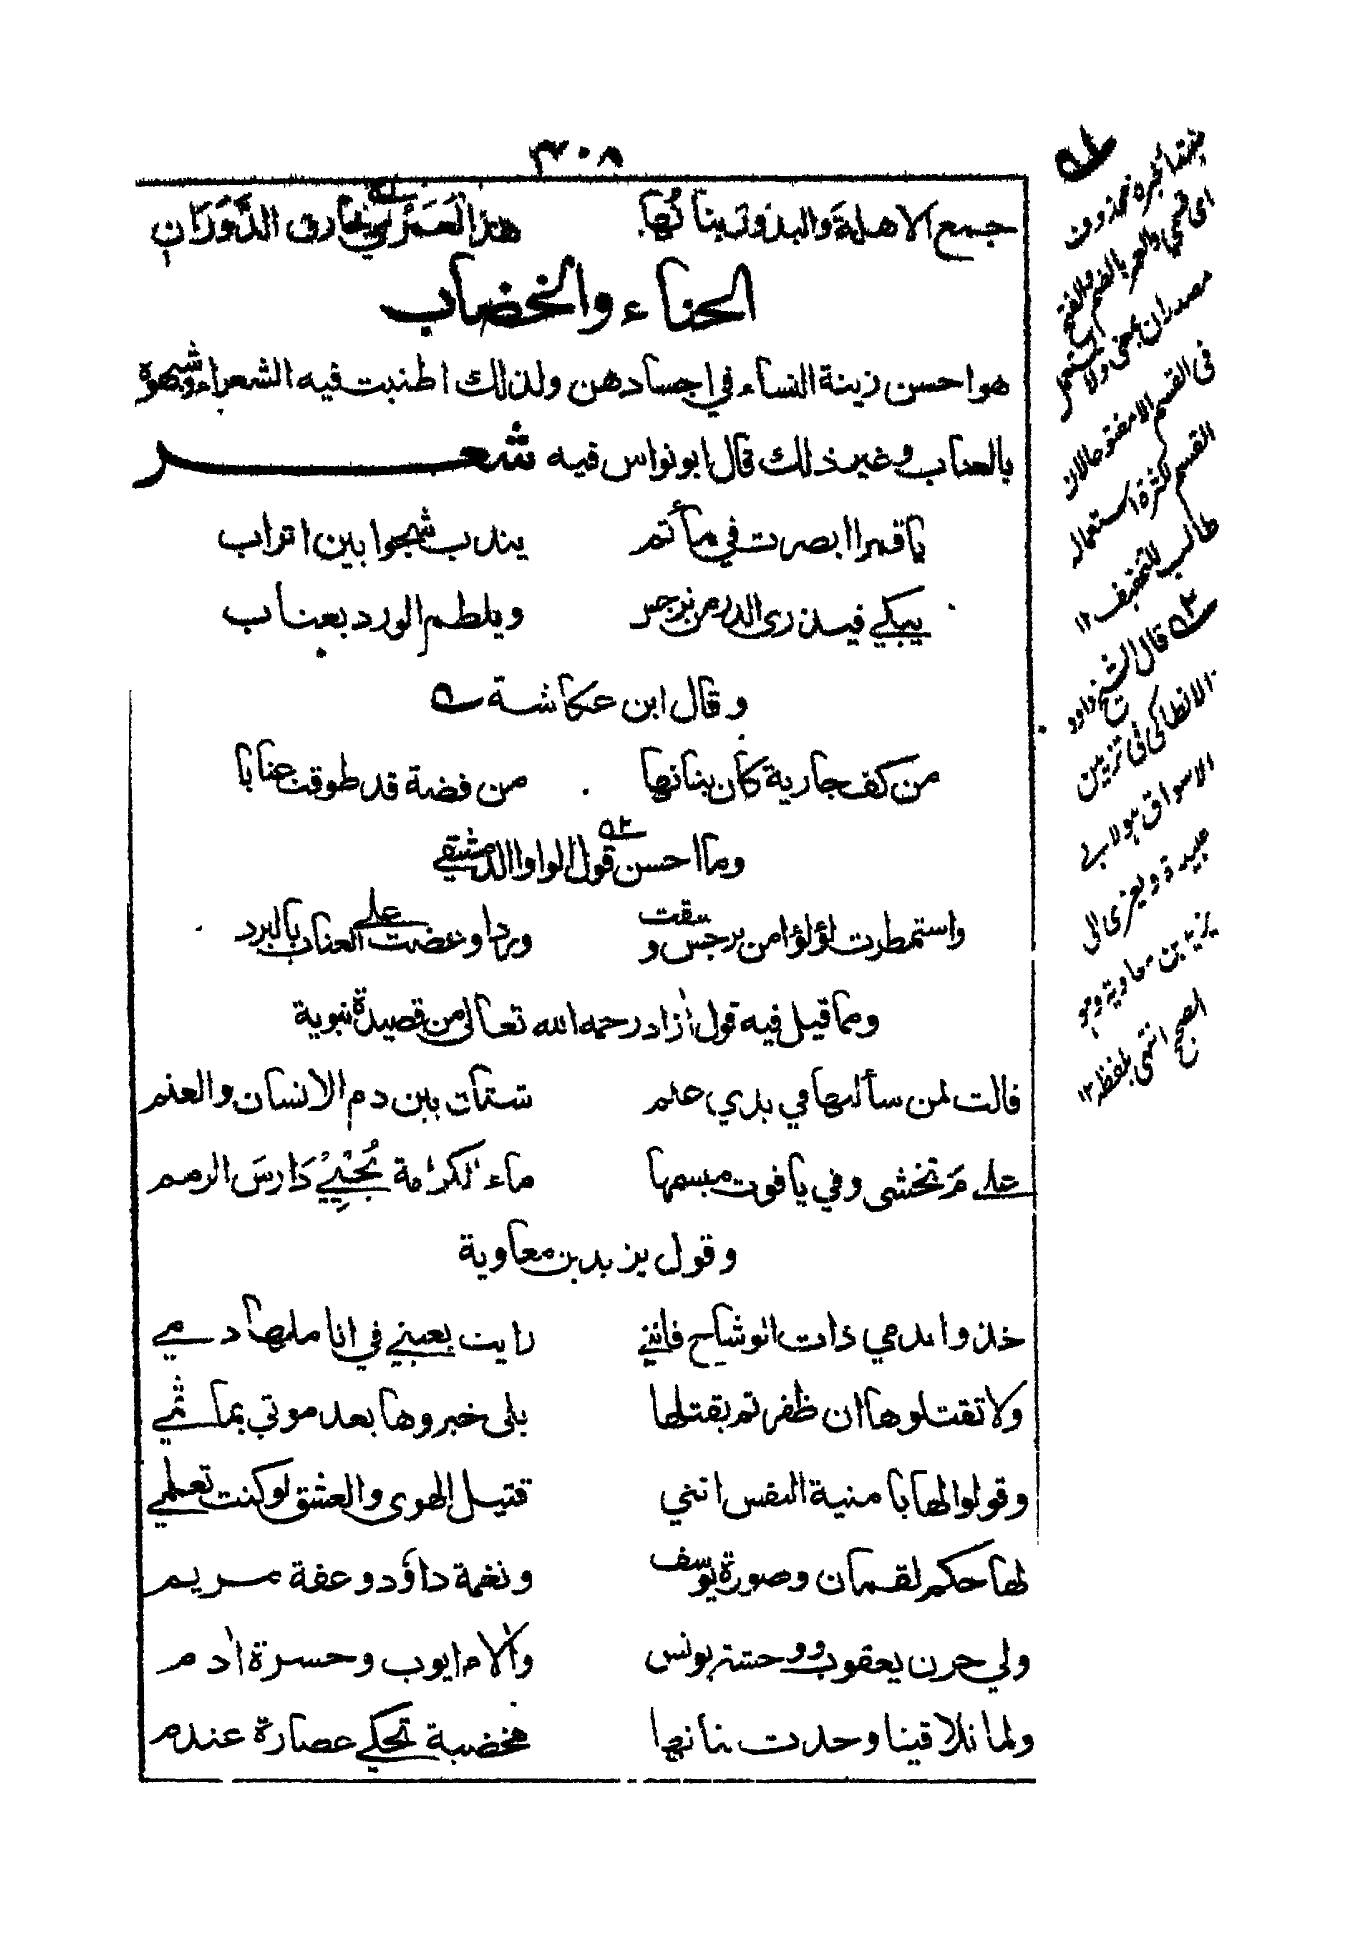 ٣٠٨
جمع الاهلة والبدوتــبنانُها هذا لَعَمْرُكَ خارق الدَّوَرَان
الحناء والخضاب
هو احسن زينة النساء في اجسادهن ولذلك اطنبت فيه الشعراء وشبهوة
بالعناب وغير ذلك قال ابو نواس فيه شعر
يا قمرا ابصرت في مأتم يندب شجوا بين اتراب
يبكي فيذري الدر من نرجس ويلطم الورد بعناب
وقال ابن عكاشة
من كف جارية كأن بنانها من فضة قد طوقت عنابا
وما احسن قول الواوا الدمشقي
واستمطرت لؤلؤا من نرجس وسقت وردا وعضت على العناب بالبرد
ومما قيل فيه قول ازاد رحمه الله تعالى من قصيدة نبوية
قالت لمن سألها في يدي علم ستان بين دم الانسان والعنم
على مَ تخشى وفي ياقوت مبسمها ماء الكرامة يُحْيِيْ دَارسَ الرمم
وقول يزيد بن معاوية
خذوا بدمي ذات الوشاح فانني رايت بعيني في اناملها دمي
ولا تقتلوها ان ظفرتم بقتلها بلى خبروها بعد موتي بماتمي
وقولوا لها يا منية النفس انني قتيل الهوى والعشق لو كنت تعلمي
لها حكم لقمان وصورة يوسف ونغمة داؤد وعفة مريم
ولي حزن يعقوب ووحشة يونس والام ايوب وحسرة ادم
ولما تلاقينا وجدت بنانها مخضبة تحكي عصارة عندم
مصدران بمعنى ولا يستعمل
فى القسم الا مفتوحا لان
القسم لكثرة استعماله
طالب للتخفيف ١٢
قال الشيخ داود
الانطاكى فى تزيين
الاسواق
عبيدة ويعزى الى
يزيد بن معاوية وهو
الصحيح انتهى بلفظه ١٢